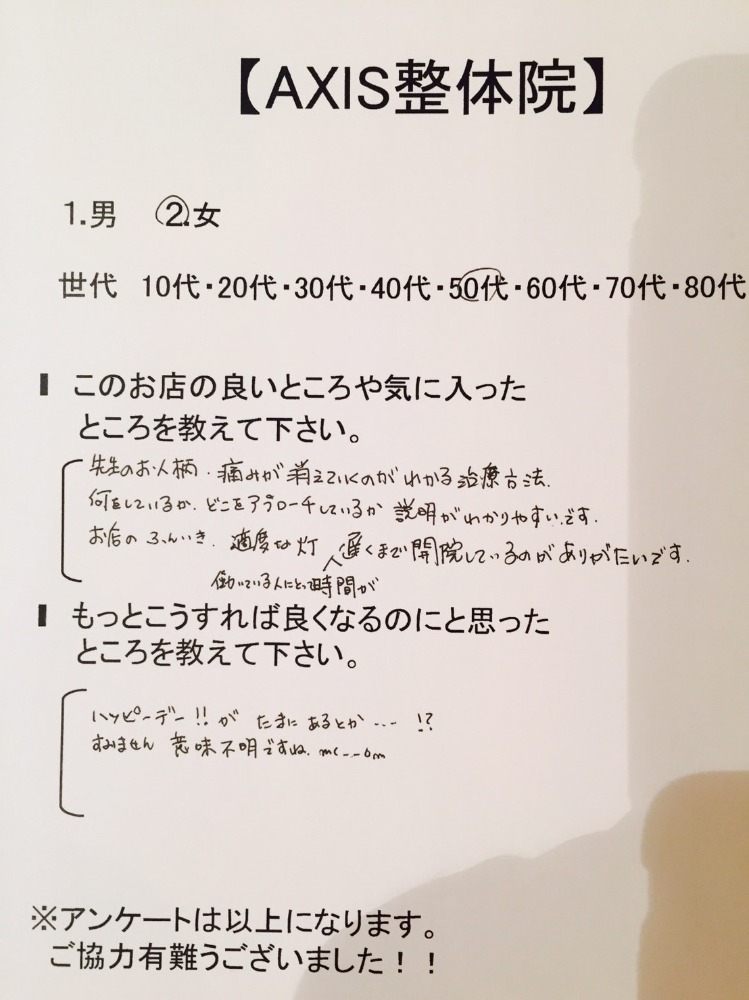 【AXIS整体院】
1.男 2.女
世代 10代・20代・30代・40代・50代・60代・70代・80代
このお店の良いところや気に入った
ところを教えて下さい。
先生のお人柄.痛みが消えていくのがわかる治療方法.
何をしているか.どこをアプローチしているか 説明がわかりやすいです.
お店のふんいき.適度な灯 遅くまで開院しているのがありがたいです.
働いている人にとって時間が
もっとこうすれば良くなるのにと思った
ところを教えて下さい。
ハッピーデー!!が たまにあるとか--- !?
すみません 意味不明ですね. m(_ _)m
※アンケートは以上になります。
ご協力有難うございました!!